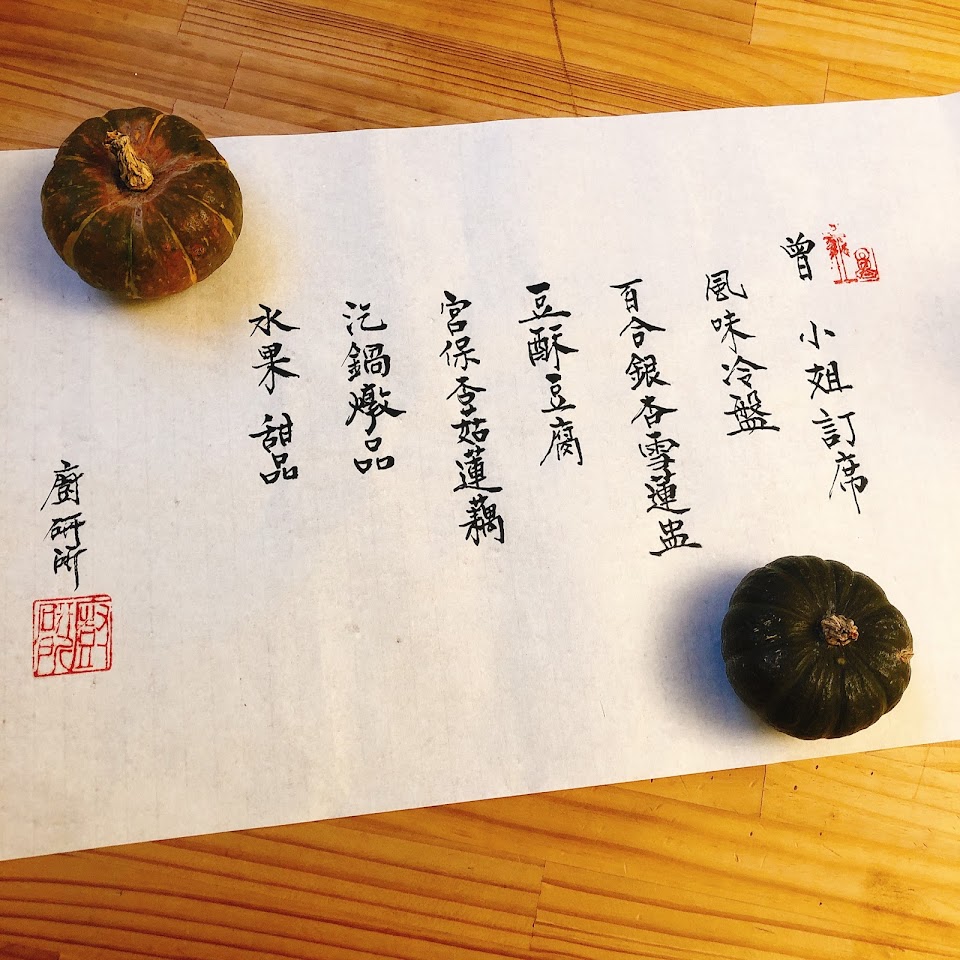 曾 小姐訂席
風味冷盤
百合銀杏雪蓮盅
豆酥豆腐
宮保杏菇蓮藕
汽鍋燉品
水果 甜品
廚研所
廚研所